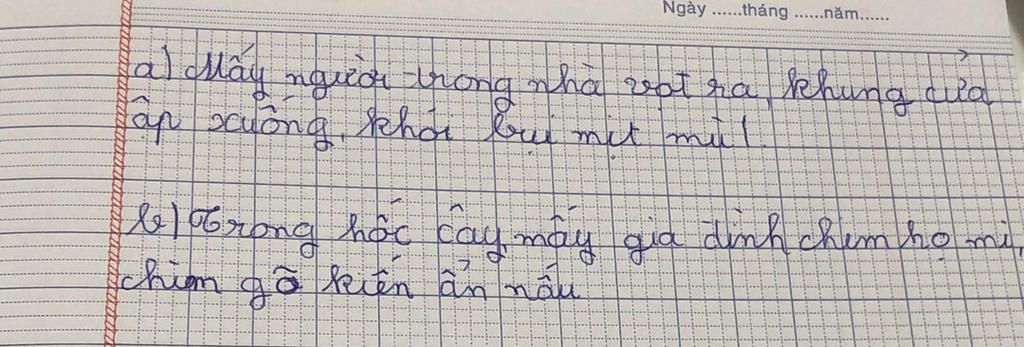 Ngày ......tháng ......năm......
a) Mấy người trong nhà vọt ra, khung cửa
ập xuống, khói bụi mịt mù!
b) Trong hốc cây, mấy gia đình chim họ mi,
chim gõ kiến ẩn náu